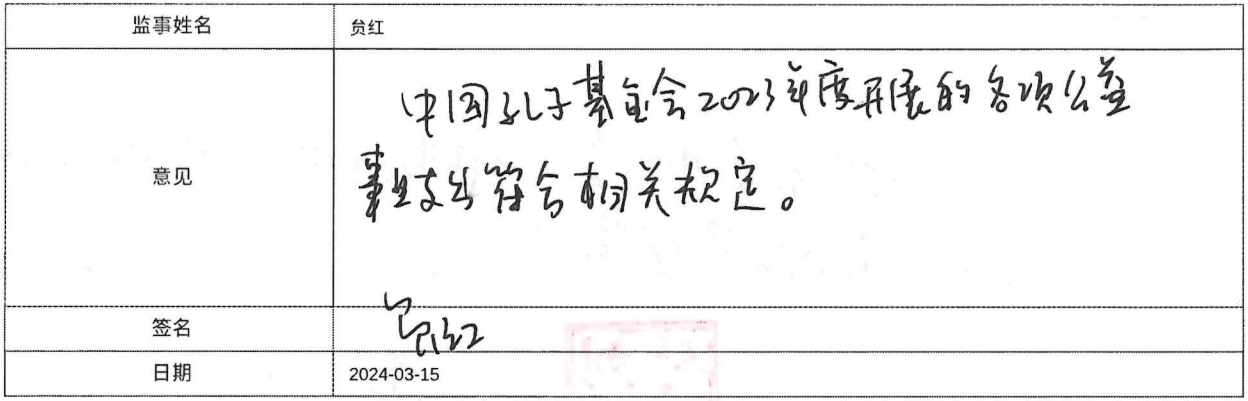 监事姓名 贠红
意见
中国孔子基金会2023年度开展的各项公益
事业支出符合相关规定。
签名 贠红
日期 2024-03-15